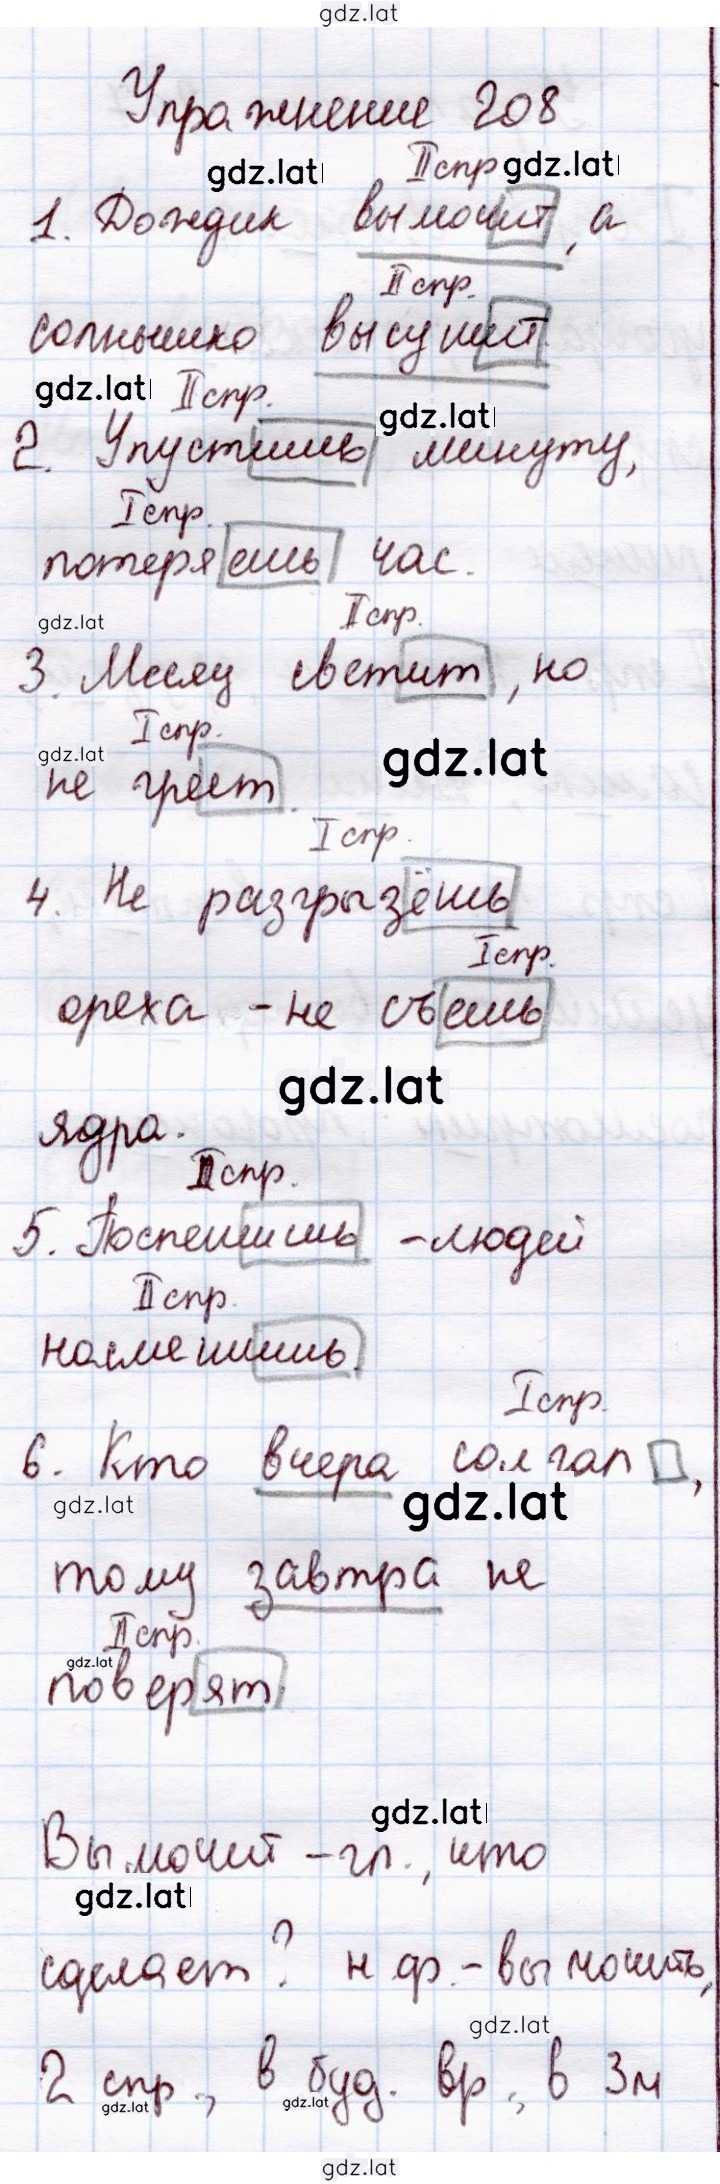 gdz.lat
Упражнение 208
gdz.lat II спр gdz.lat
1. Дождик вымочит, а
II спр.
солнышко высушит
gdz.lat II спр. gdz.lat
2. Упустишь минуту,
I спр.
потеряешь час.
gdz.lat II спр.
3. Месяц светит, но
gdz.lat I спр. gdz.lat
не греет.
I спр.
4. Не разгрызёшь
I спр.
ореха - не съешь
gdz.lat
ядра.
II спр.
5. Поспешишь - людей
II спр.
насмешишь.
I спр.
6. Кто вчера солгал,
gdz.lat gdz.lat
тому завтра не
II спр.
gdz.lat
поверят.
gdz.lat
Вымочит - гл., что
gdz.lat
сделает? н.ф. - вымочить,
gdz.lat
2 спр., в буд. вр., в 3м
gdz.lat gdz.lat
gdz.lat